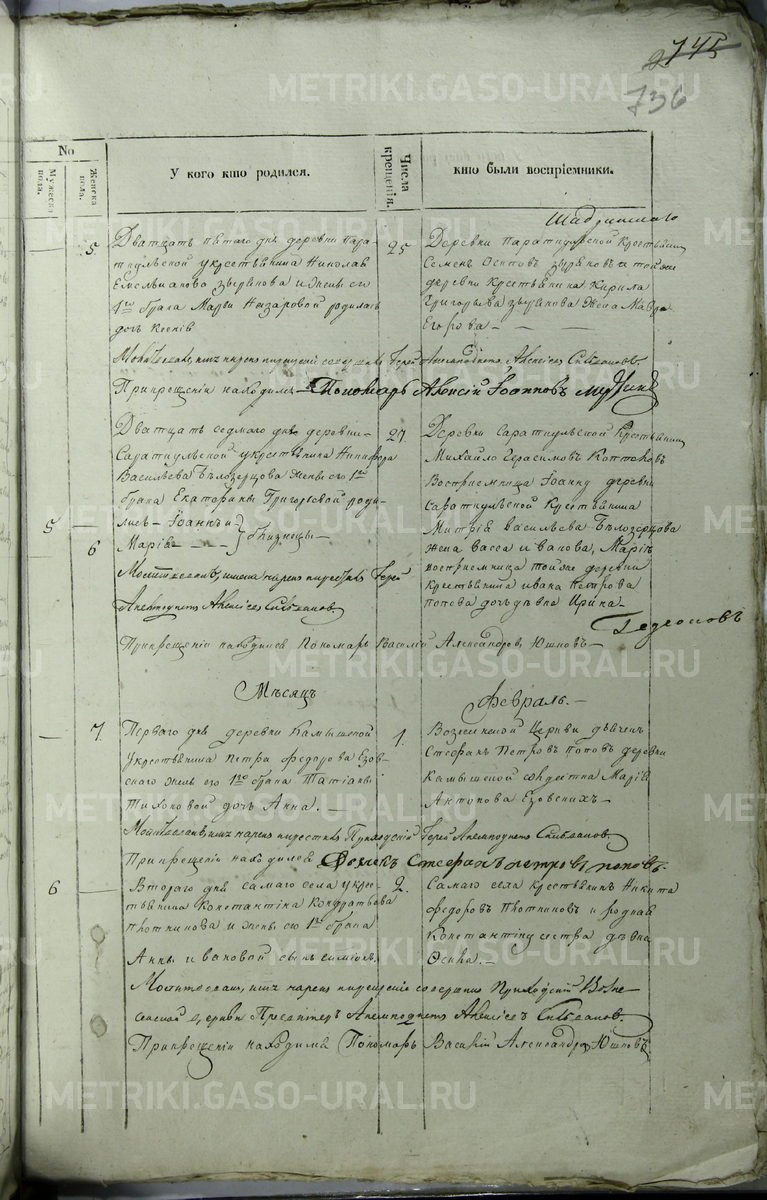 745
736
No
Мужеска пола.
Женска пола.
У кого кто родился.
Числа крещенія.
кто были воспріемники.
5
Дватцать пятаго дня деревни Пара-
ткульской у крестьянина Николая
Емельянова Зырянова и жены его
1го брака Марьи Назаровой родилась
дочь Ксенія
25
Деревни Параткульской Крестьянин
Семен Осипов Зырянов и той же
деревни Крестьянина Кирила
Григорьева Зырянова жена Мавра
Егорова
Молитвовал, имя нарек и крещеніе совершил Іерей Анемподист Алексіев
При крещеніи находился Пономарь Алексій Іоаннов
Дватцать седмаго дня деревни
Сараткульской у крестьянина Никифора
Васильева Белозерцова жены его 1го
брака Екатерины Григорьевой роди-
лись Іоанн и
Марія
близнецы
27
5
6
Деревни Сараткульской Крестьянин
Михайло Герасимов
Воспріемница Іоанну деревни
Сараткульской Крестьянина
Митрія Васильева Белозерцова
жена Васса Иванова, Маріи
воспріемница той же деревни
крестьянина Ивана Петрова
Попова дочь девка Ирина
Молитвовал, имена нарек и крестил Іерей
Анемподист Алексіев
При крещеніи находился Пономарь Василій Александров Юшков
Месяц
Февраль.
7.
Перваго дня деревни Камышной
у крестьянина Петра Федорова Езов-
скаго жены его 1го брака Татіаны
Тихоновой дочь Анна.
1.
Вознесенской Церкви дьячек
Стефан Петров Попов деревни
Камышной девка Марія
Антонова Езовских
Молитвовал, имя нарек и крестил Приходскій Іерей Анемподист
При крещеніи находился Дьячек Стефан Петров Попов.
6
Втораго дня самаго села у крес-
тьянина Константина Кондратьева
Плотникова и жены его 1го брака
Анны Ивановой сын Симеон.
2.
Самаго села крестьянин Никита
Федоров Плотников и родная
Константину сестра девка
Молитвовал, имя нарек и крещеніе совершил Приходскій Возне-
сенской Церкви Пресвитер Анемподист Алексіев
При крещеніи находился Пономарь Василій Александров Юшков
METRIKI.GASO-URAL.RU